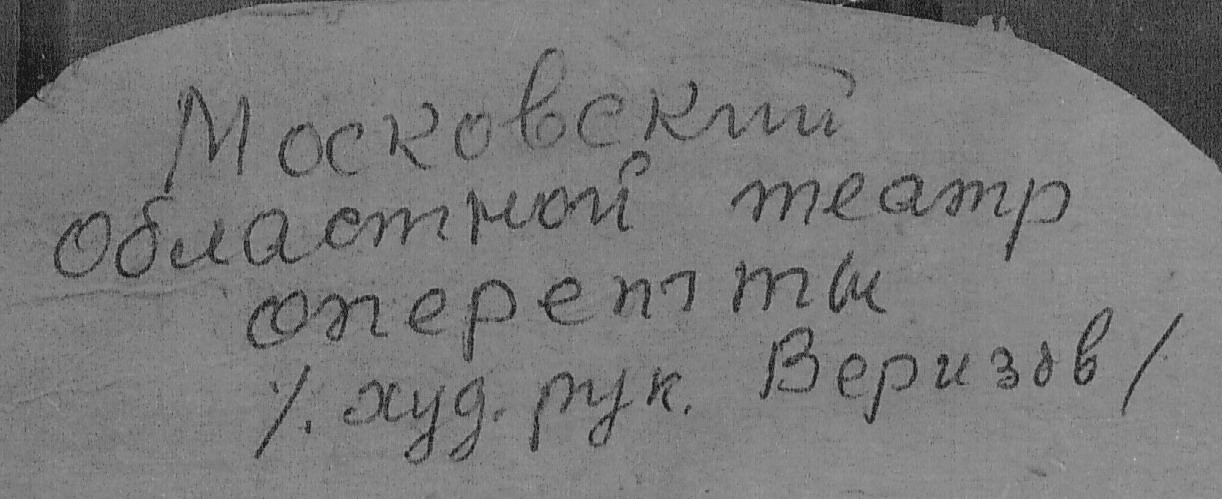 Московский
областной театр
оперетты
/. худ. рук. Веризов /